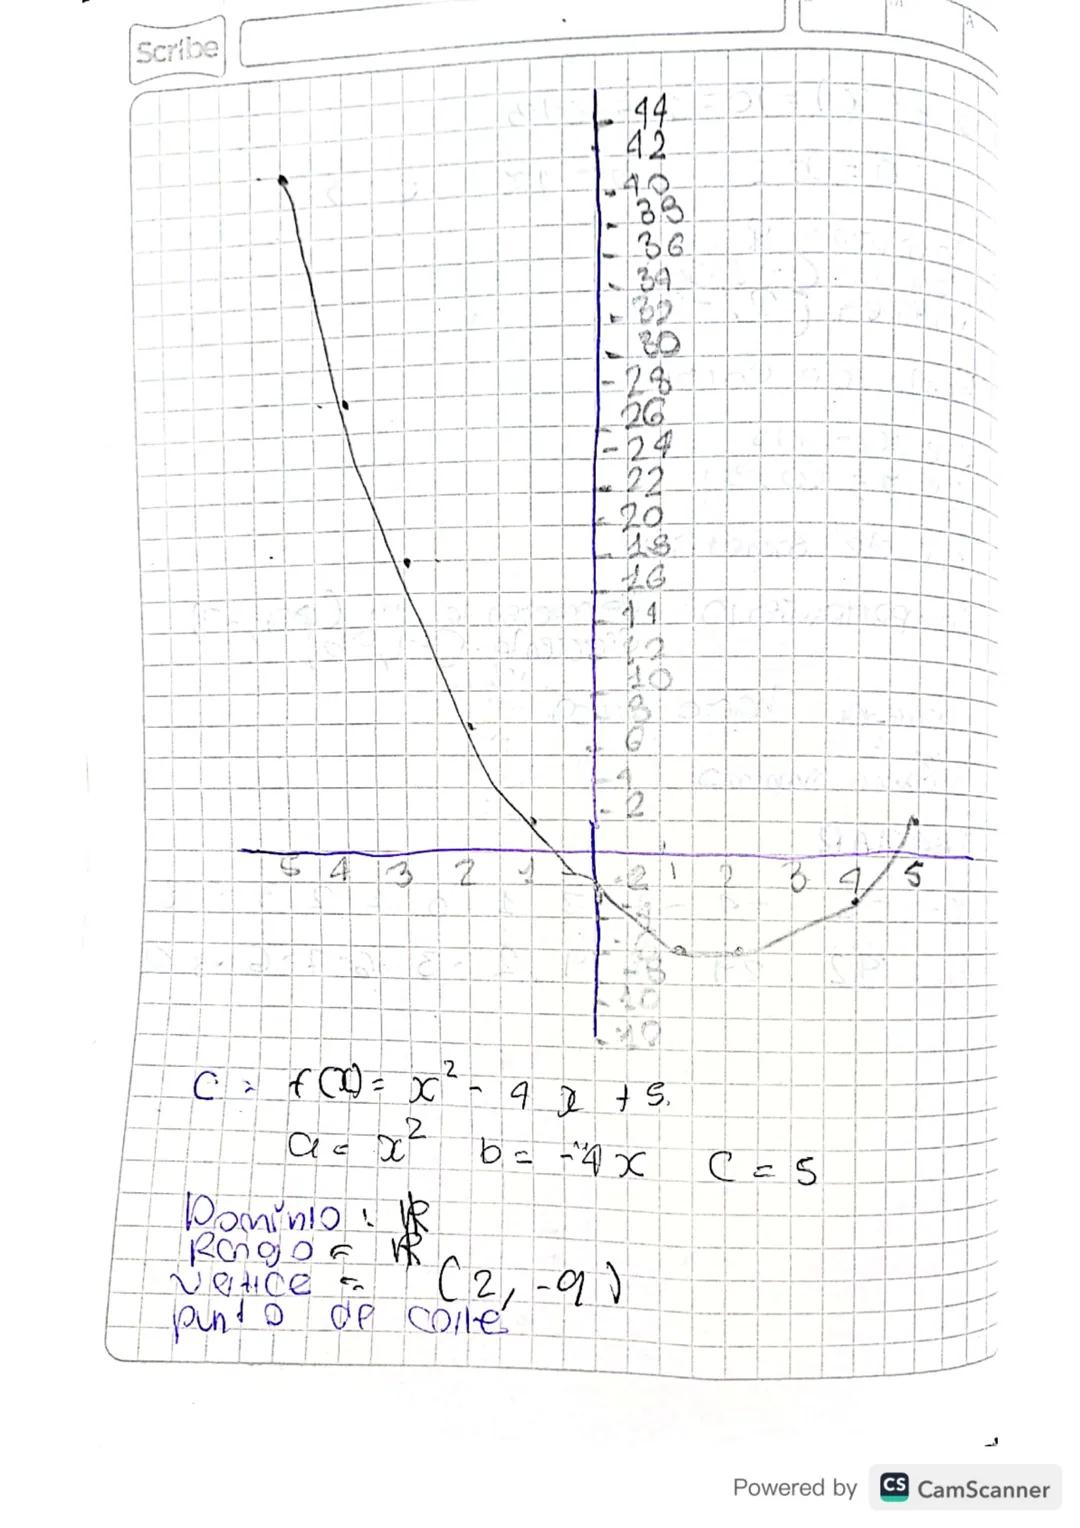 Scribe
44
42
40
38
36
34
32
30
28
26
24
22
20
18
16
14
12
10
8
6
4
2
5 4 3 2 1 -2 1 2 3 4 5
-10
-10
C = f(x) = x² - 4x + 5.
a = x² b = -4x C = 5
Dominio : R
Rango = R
vertice = (2, -9)
punto de corte
Powered by CS CamScanner